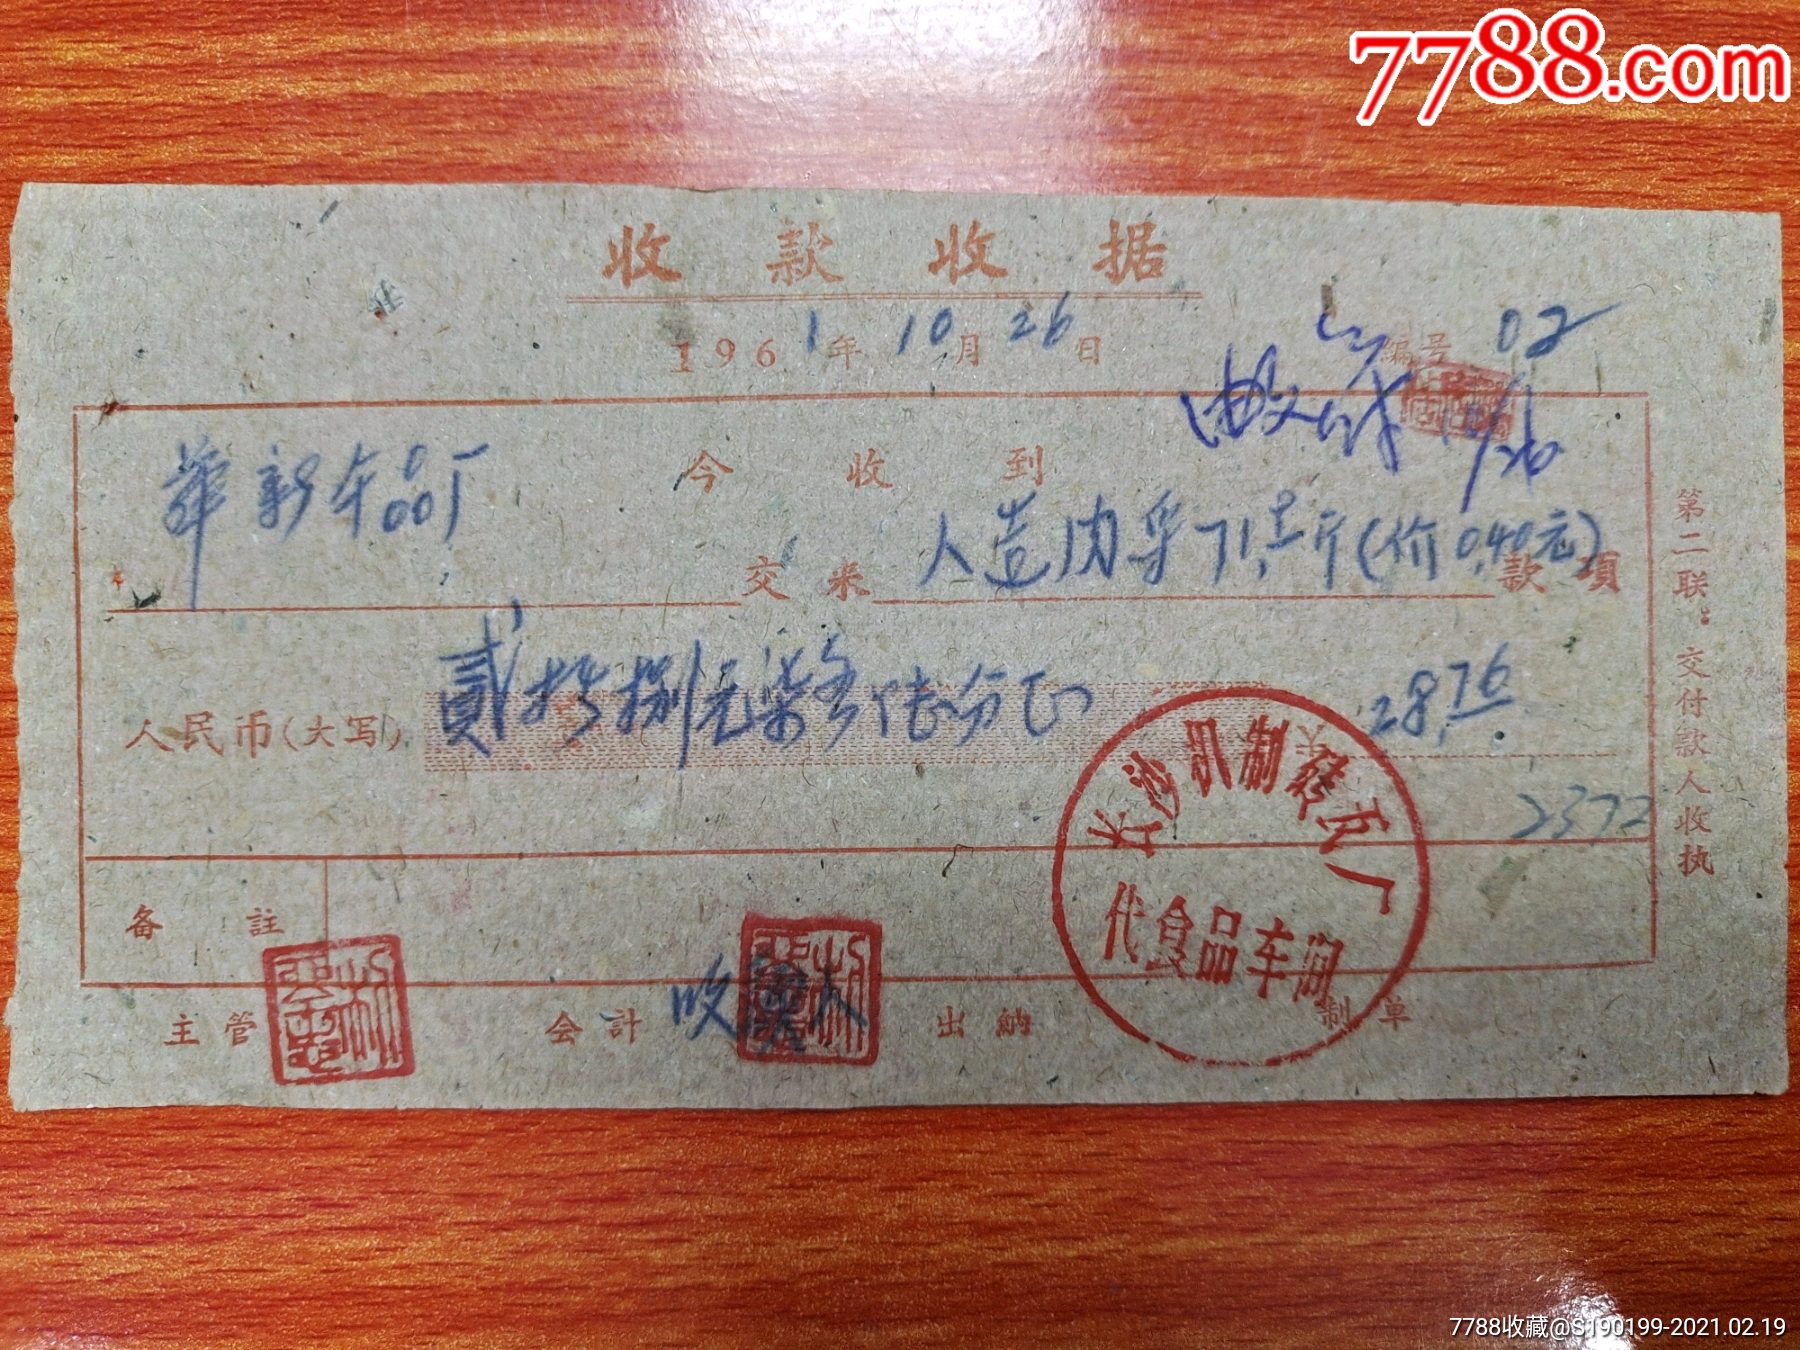 7788.com
收款收据
1961年10月26日
编号 02
今收到
华新食品厂 交来 人造肉采71.9斤(价0.40元) 款项
人民币(大写) 貳拾捌元柒角陆分正 28.76
2372
备註
主管 会计 收 出納 制单
第二联：交付款人收执
长沙机制砖瓦厂
代食品车间
7788收藏@S190199-2021.02.19